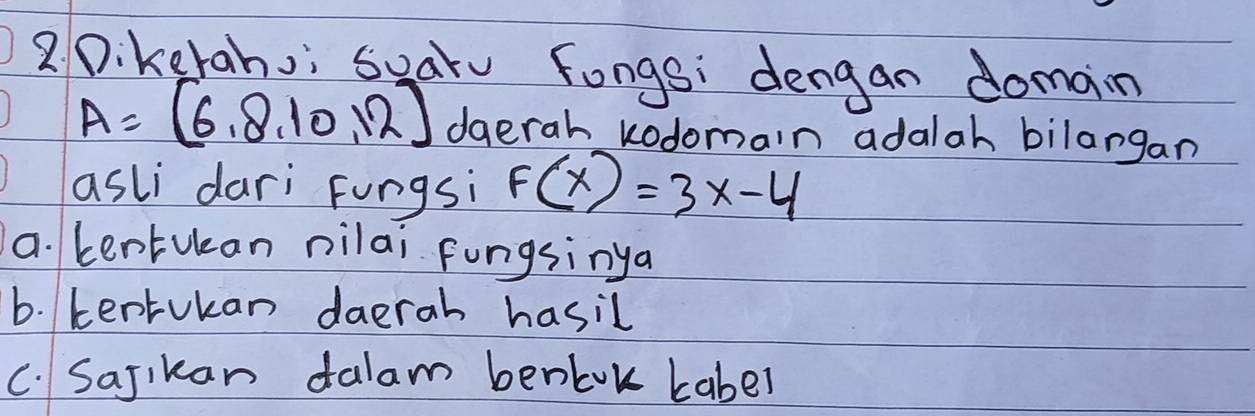 2. Diketahui suatu fungsi dengan domain
A = [6,8,10,12] daerah kodomain adalah bilangan
asli dari fungsi F(x) = 3x-4
a. tentukan nilai fungsinya
b. tentukan daerah hasil
c. Sajikan dalam bentuk tabel